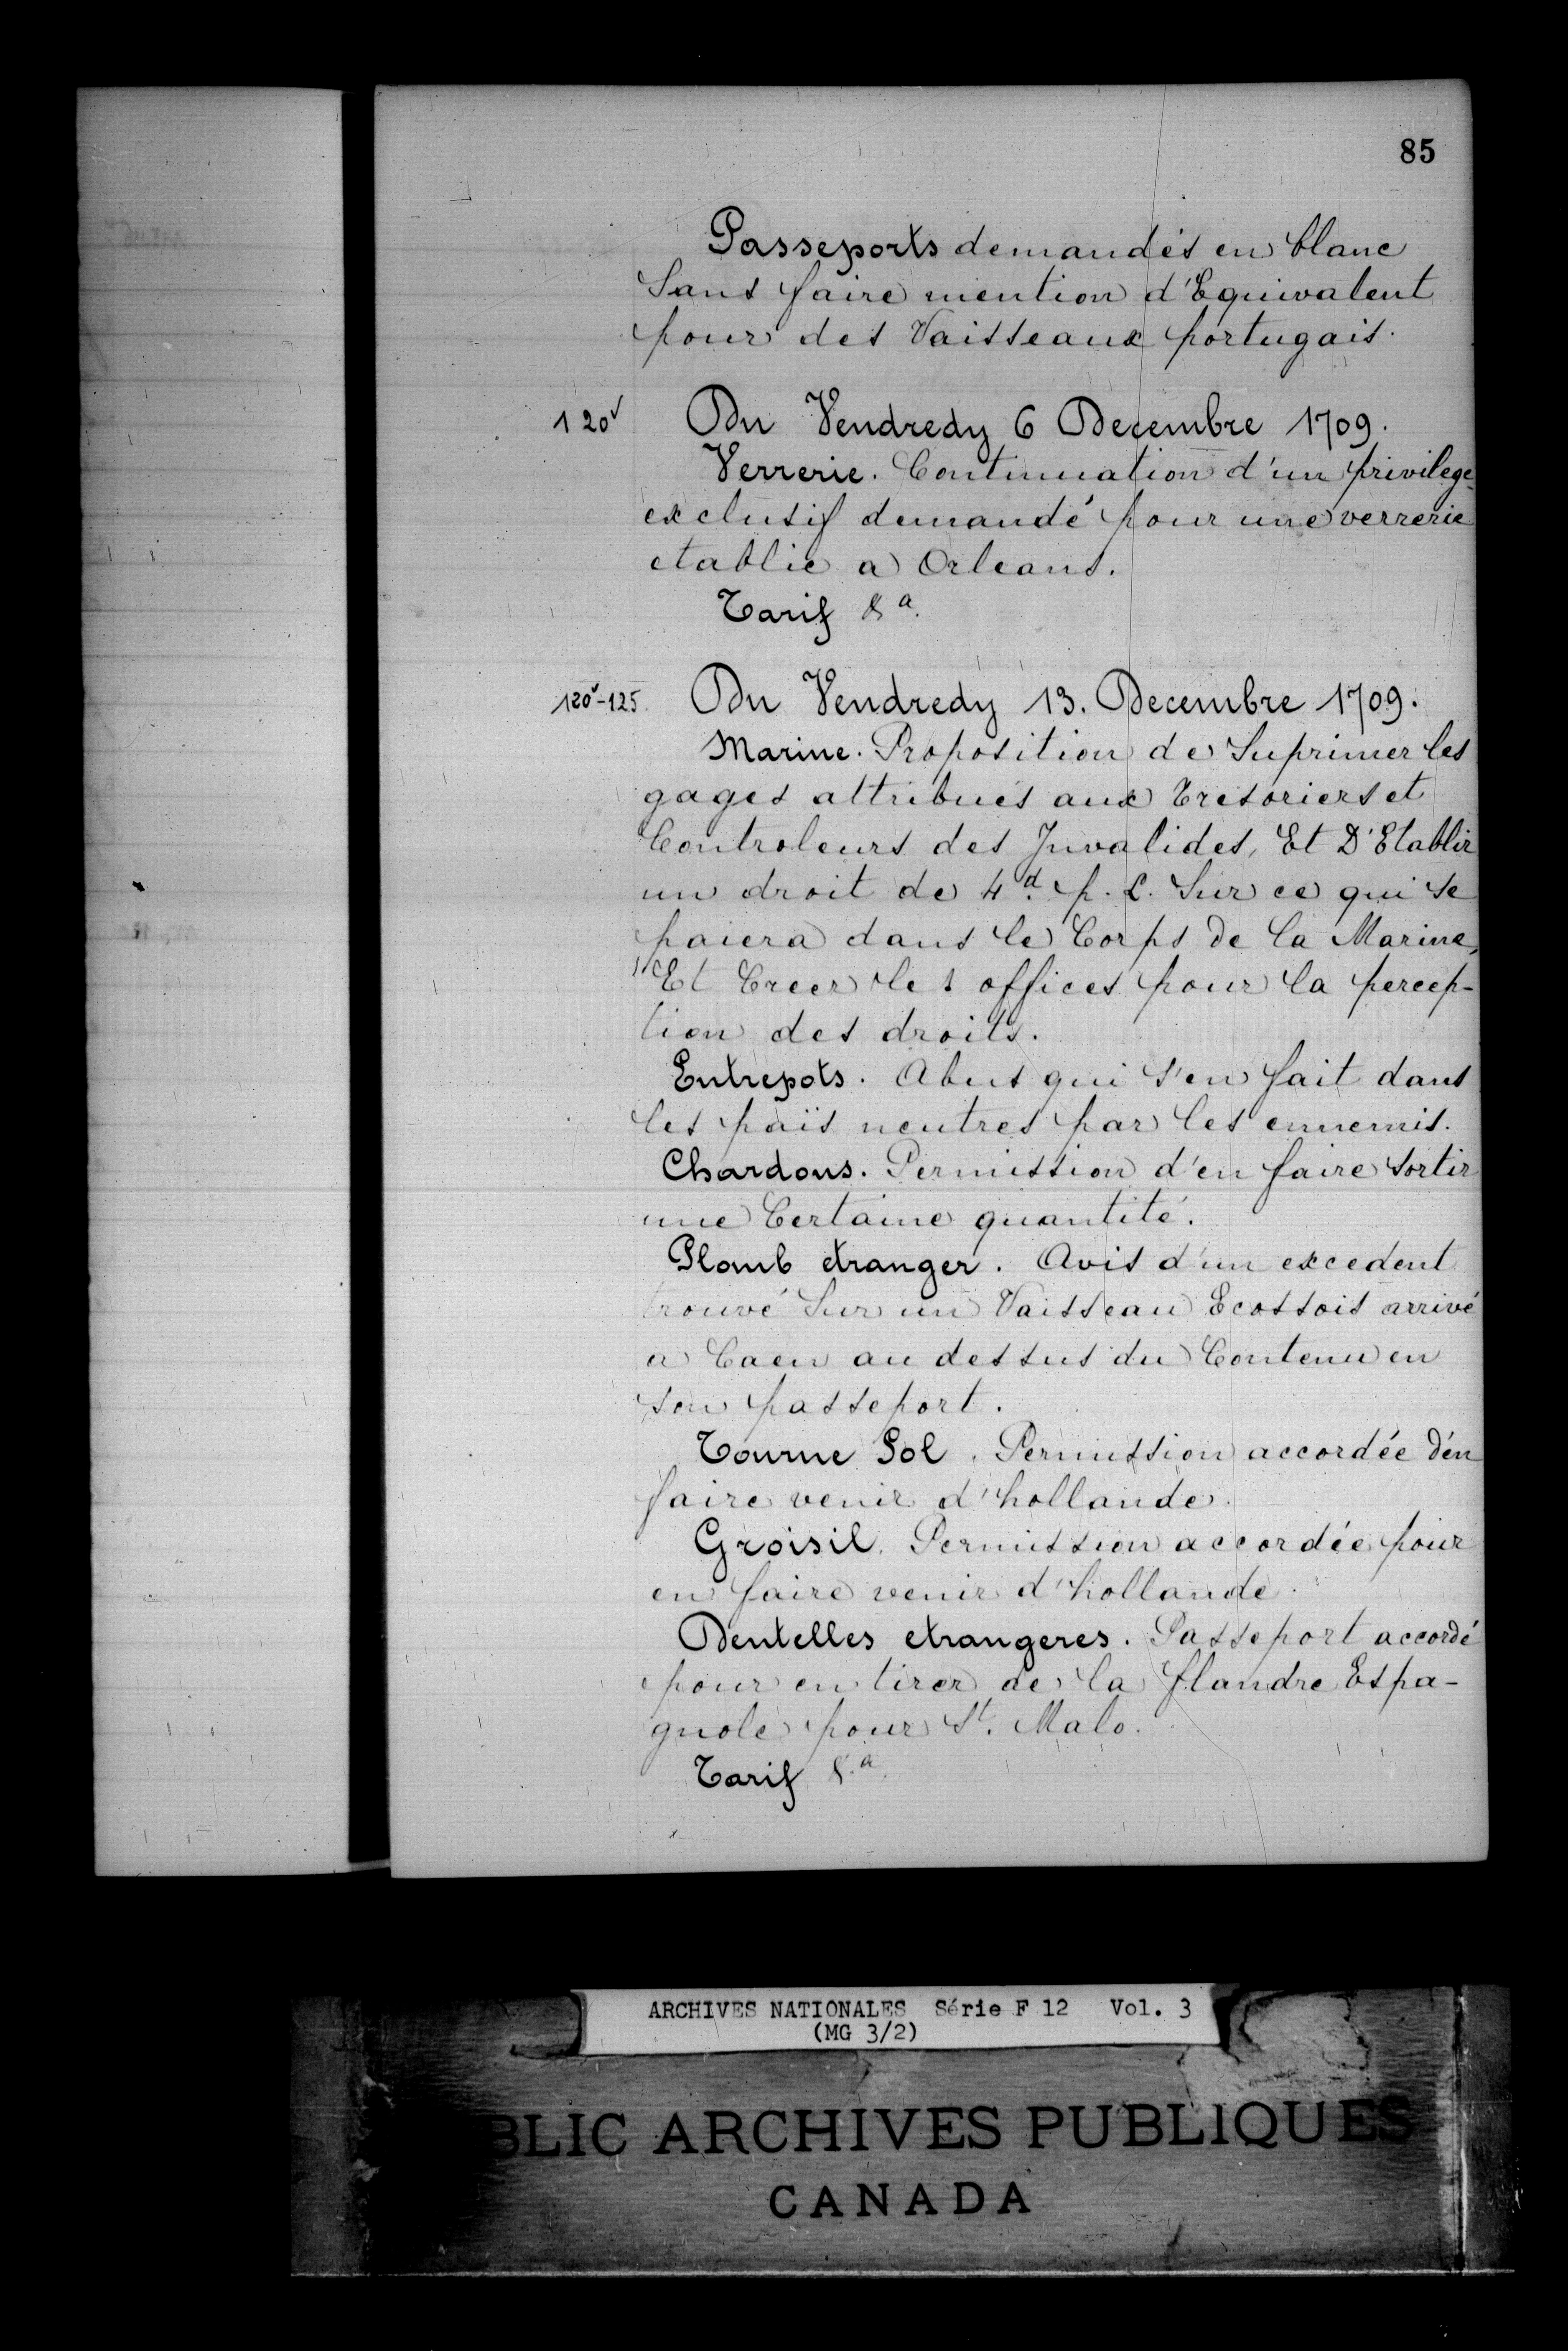 85
Passeports demandés en blanc
Sans faire mention d'Equivalent
pour des Vaisseaux portugais.
120v Du Vendredy 6 Decembre 1709.
Verrerie. Continuation d'un privilege
exclusif demandé pour une verrerie
etablie a Orleans.
Tarif &a.
120v-125. Du Vendredy 13. Decembre 1709.
Marine. Proposition de Suprimer les
gages attribués aux Tresoriers et
Controleurs des Invalides, Et D'Etablir
un droit de 4d. p. L. Sur ce qui se
paiera dans le Corps de la Marine,
Et Creer les offices pour la percep-
tion des droits.
Entrepots. Abus qui s'en fait dans
les païs neutres par les ennemis.
Chardons. Permission d'en faire Sortir
une Certaine quantité.
Plomb etranger. Avis d'un excedent
trouvé Sur un Vaisseau Ecossois arrivé
a Caen au dessus du Contenu en
son passeport.
Tourne Sol. Permission accordée d'en
faire venir d'hollande.
Groisil. Permission accordée pour
en faire venir d'hollande.
Dentelles etrangeres. Passeport accordé
pour en tirer de la flandre Espa-
gnole pour St. Malo.
Tarif &a.
ARCHIVES NATIONALES Série F 12 Vol. 3
(MG 3/2)
BLIC ARCHIVES PUBLIQUES
CANADA